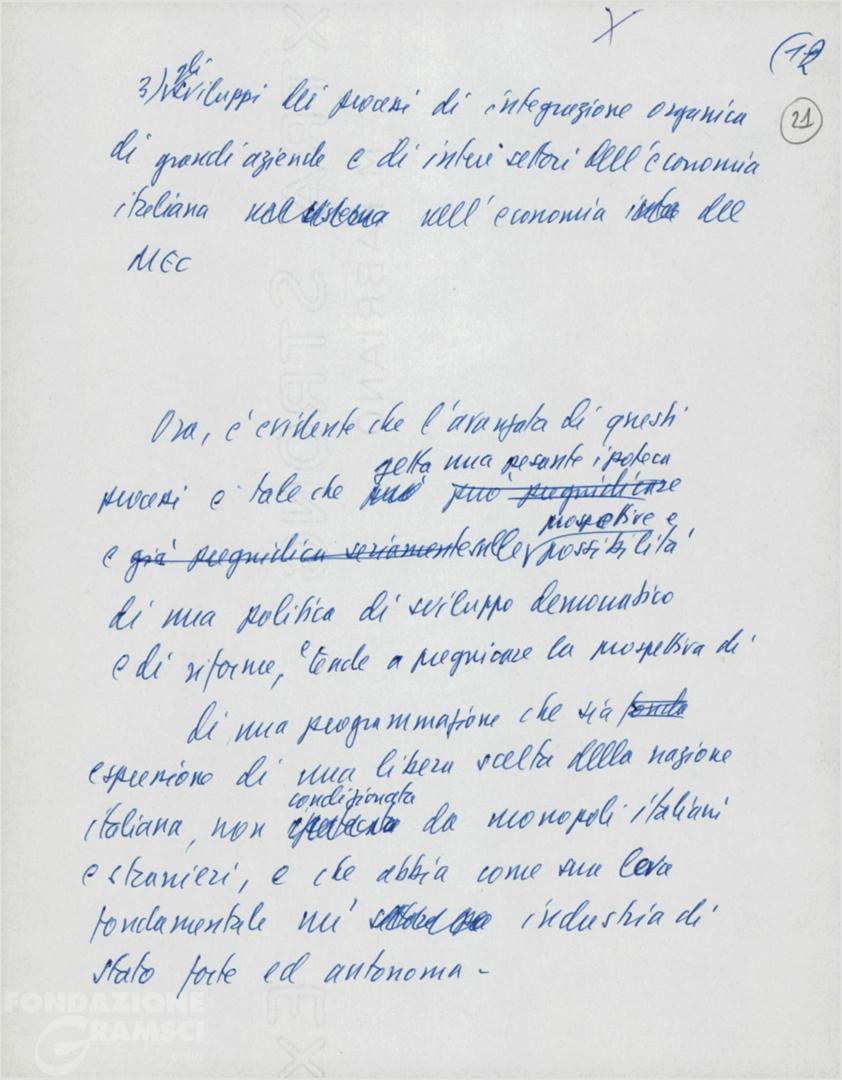 (12
21
gli
3) sviluppi dei processi di integrazione organica
di grandi aziende e di interi settori dell'economia
italiana nel sistema nell'economia del
MEC
Ora, è evidente che l'avanzata di questi
getta una pesante ipoteca
processi è tale che può può pregiudicare
prospettive e
e già pregiudica seriamente sulle possibilità
di una politica di sviluppo democratico
e di riforme, e tende a pregiudicare la prospettiva di
di una programmazione che sia
espressione di una libera scelta della nazione
condizionata
italiana, non da monopoli italiani
e stranieri, e che abbia come sua leva
fondamentale un' industria di
stato forte ed autonoma -
FONDAZIONE
GRAMSCI